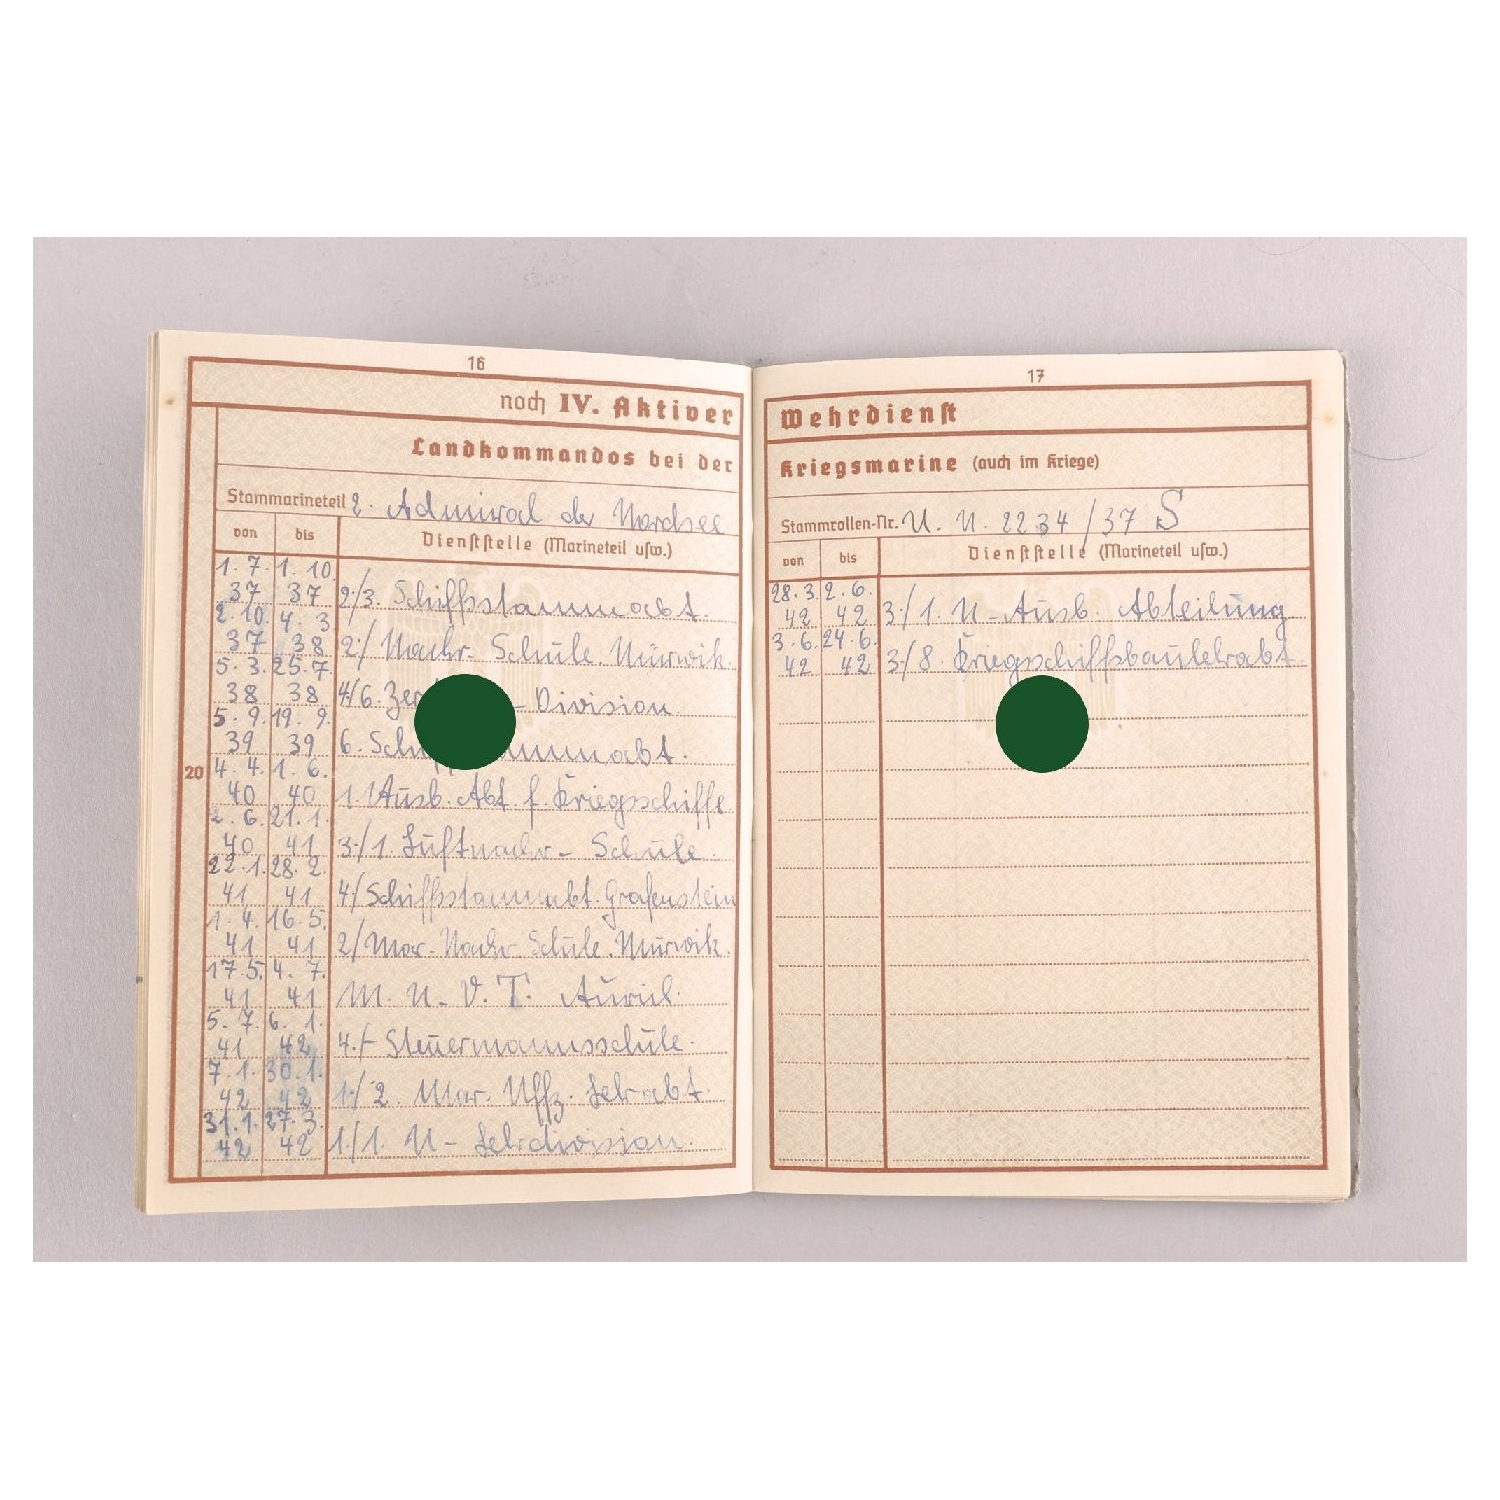 16
noch IV. Aktiver
Landkommandos bei der
Stammarineteil 2. Admiral der Nordsee
von bis Dienststelle (Marineteil usw.)
1. 7. 37 1. 10. 37 2./3. Schiffsstammabt.
2. 10. 37 4. 3. 38 2./ Nachr. Schule. Mürwik.
5. 3. 38 25. 7. 38 4/6. Division
5. 9. 39 19. 9. 39 6.
4. 4. 40 1. 6. 40 1. Ausb. Abt. f. Kriegsschiffe
2. 6. 40 21. 1. 41 3./1. Luftnachr- Schule.
22. 1. 41 28. 2. 41 4/ Schiffsstammabt.
1. 4. 41 16. 5. 41 2/ Mar. Nachr. Schule. Mürwik.
17. 5. 41 4. 7. 41 M. N. V. T.
5. 7. 41 6. 1. 42 4./- Steuermannsschule.
7. 1. 42 30. 1. 42 1./2. Mar. Uffz. Lehrabt.
31. 1. 42 27. 3. 42 1/1. U- Lehrdivision.
20
17
Wehrdienst
Kriegsmarine (auch im Kriege)
Stammrollen-Nr. U. N. 2234/37 S
von bis Dienststelle (Marineteil usw.)
28. 3. 42 2. 6. 42 3./1. U-Ausb. Abteilung
3. 6. 42 24. 6. 42 3/8. Kriegsschiffsbaulehrabt.